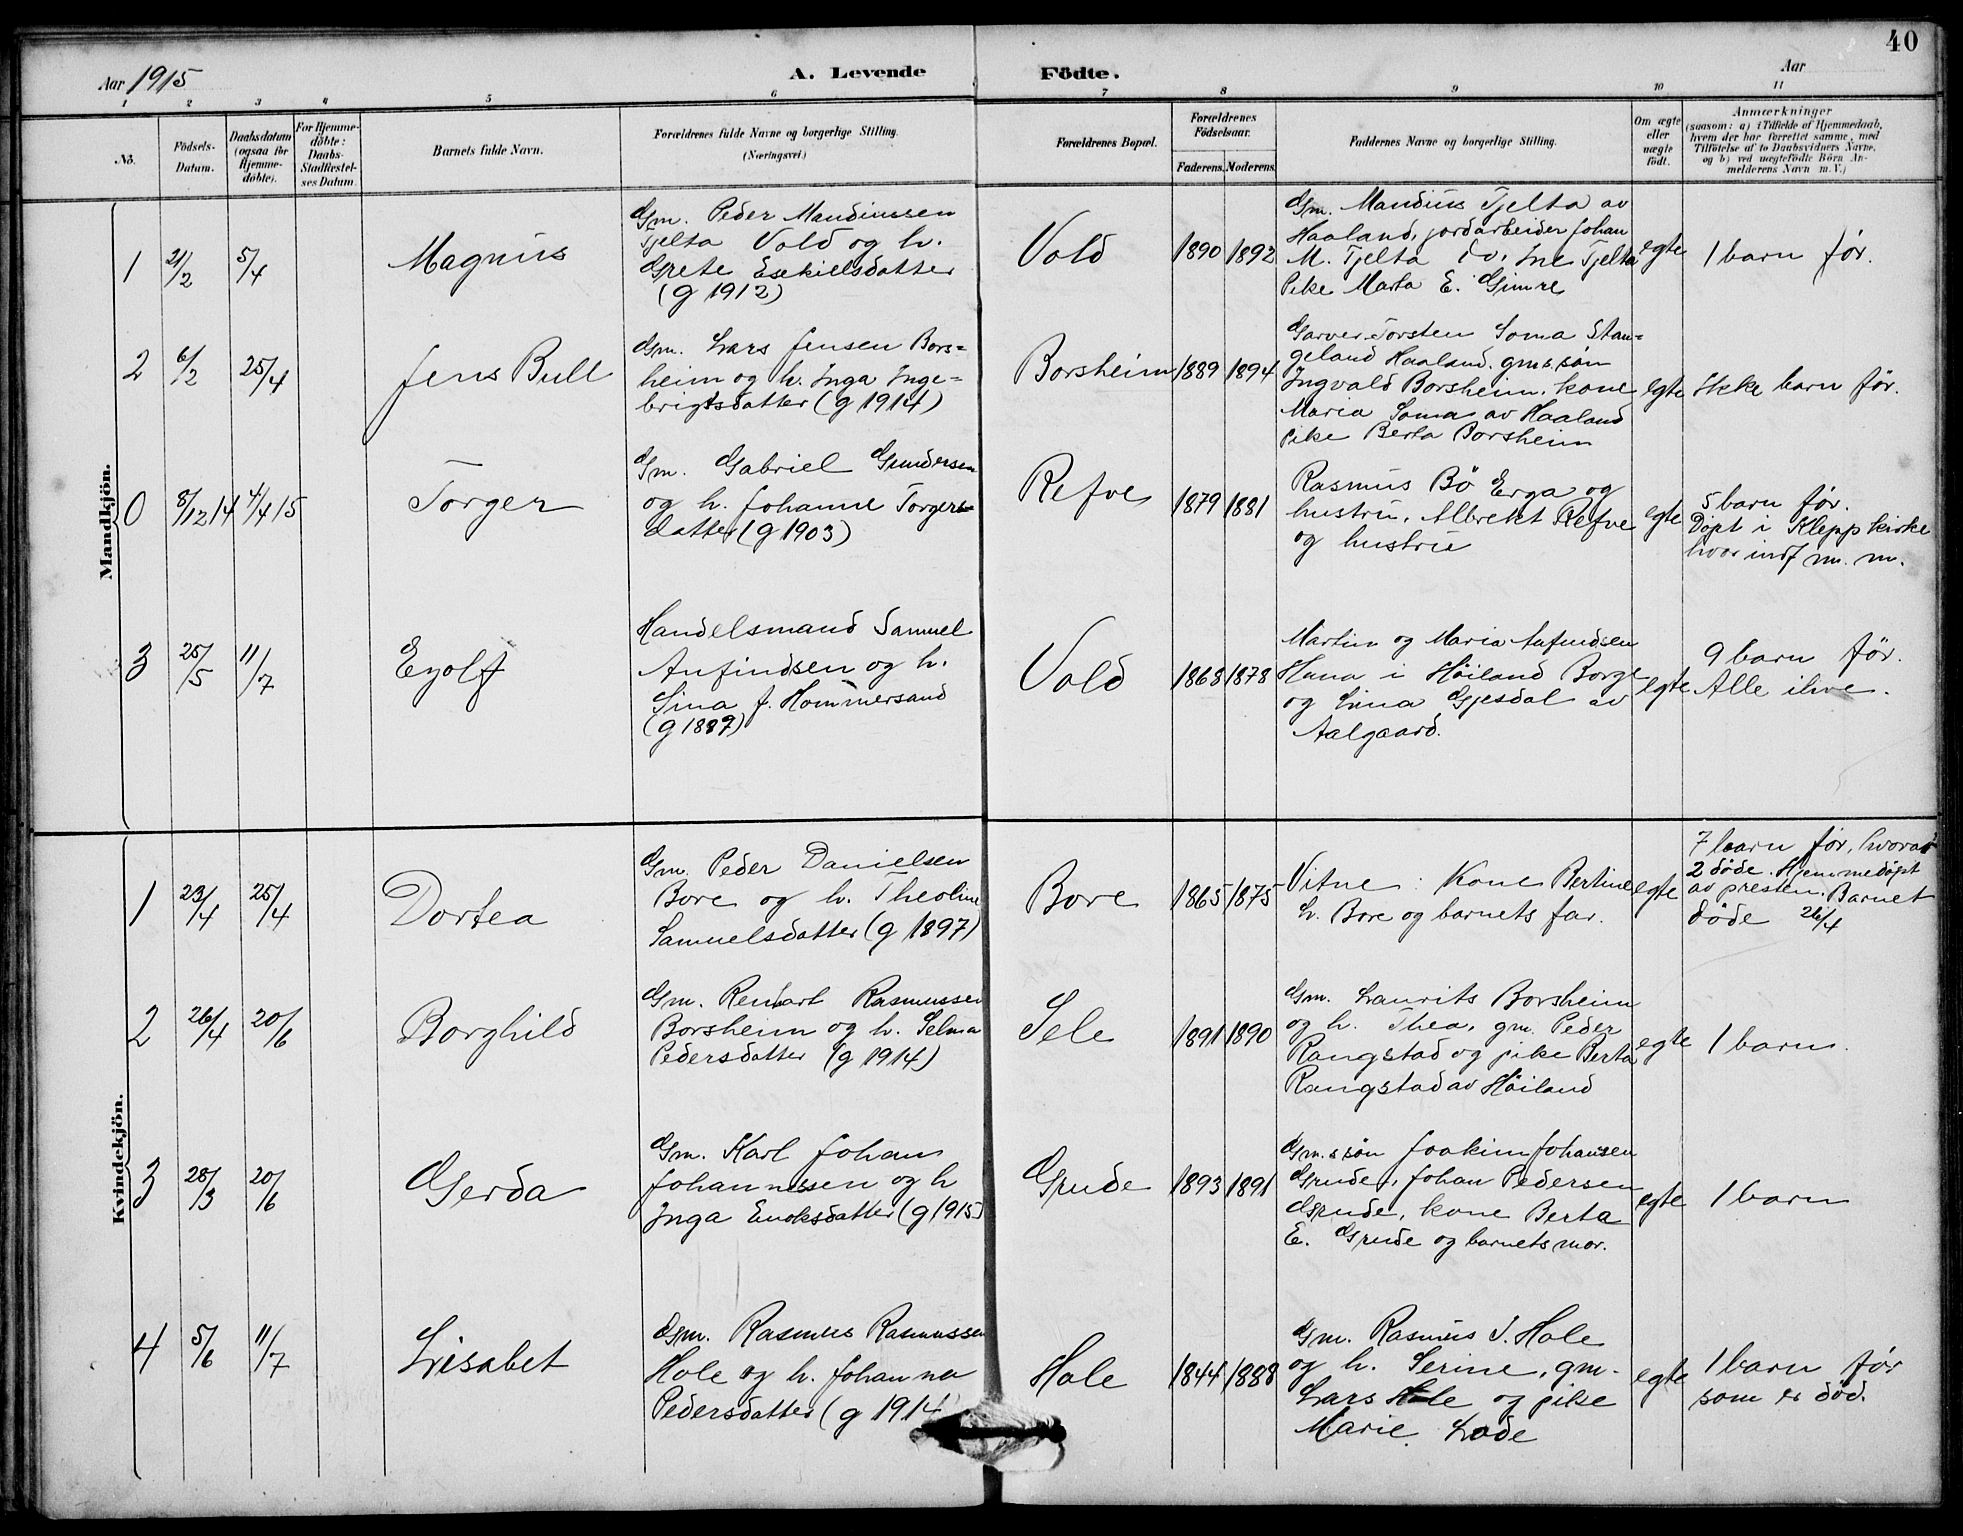 40
Aar 1915
A. Levende Födte.
Aar
1 2 3 4 5 6 7 8 9 10 11
No.
Födsels-Datum.
Daabsdatum (ogsaa for Hjemme-döbte).
For Hjemme-döbte: Daabs-Stadfæstel-ses Datum
Barnets fulde Navn.
Forældrenes fulde Navne og borgerlige Stilling.
(Næringsvei.)
Forældrenes Bopæl.
Forældrenes Födselsaar.
Faderens. Moderens.
Faddernes Navne og borgerlige Stilling.
Om ægte eller uægte födt.
Anmærkninger
(saasom: a) i Tilfælde af Hjemmedaab,
hvem der har forrettet samme, med
Tilföielse af to Daabsvidners Navne,
og b) ved uægtefödte Börn An-
melderens Navn m. V.)
Mandkjön.
1 21/2 5/4 Magnus
Gm. Peder Mandiussen
Tjelta Vold og h.
Grete Esekielsdatter
(g 1912)
Vold 1890 1892
Gm. Mandius Tjelta av
Haaland, jordarbeider Johan
M. Tjelta do, Ine Tjelta
Pike Marta E. Gimre
egte 1 barn før.
2 6/2 25/4 Jens Bull
Gm. Lars Jensen Bors=
heim og h. Inga Inge=
brigtsdatter (g 1914)
Borsheim 1889 1894
Garver Torsten Soma Stan=
geland Haaland. gms. søn
Ingvald Borsheim, kone
Maria Soma av Haaland
Pike Berta Borsheim
egte Ikke barn før.
0 8/12 14 4/4 15 Torger
Gm. Gabriel Gundersen
og h. Johanne Torgers=
datter (g 1903)
Refve 1879 1881
Rasmus Bö Erga og
hustru, Albrekt Refve
og hustru
egte 5 barn før.
Døpt i Klepp kirke
hvor indf m. m.
3 25/5 11/7 Eyolf
Handelsmand Samuel
Anfindsen og h.
Sina J. Hommersand
(g 1897)
Vold 1868 1878
Martin og Maria Anfindsen
Hana i Höiland Borge
og Lina Gjesdal av
Aalgaard.
egte 9 barn før.
Alle ilive.
Kvindekjön.
1 23/4 25/4 Dortea
Gm. Peder Danielsen
Bore og h. Theoline
Samuelsdatter (g 1897)
Bore 1865 1875
Vitne: Kone Bertine
L. Bore og barnets far.
egte 7 barn før, hvorav
2 døde. Hjemmedøpt
av presten. Barnet
døde 26/4
2 26/4 20/6 Borghild
Gm. Rasmussen
Borsheim og h. Selma
Pedersdatter (g 1914)
Sele 1891 1890
Gm. Laurits Borsheim
og h. Thea, gm. Peder
Rangstad og pike Berta
Rangstad av Höiland
egte 1 barn.
3 28/3 20/6 Gerda
Gm. Karl Johan
Johannessen og h
Inga Enoksdatter (g 1915)
Grude 1893 1891
Gm.s søn Joakim Johansen
Grude, Johan Pedersen
Grude, kone Berta
E. Grude og barnets mor.
egte 1 barn
4 5/6 11/7 Lisabet
Gm. Rasmus Rasmussen
Hole og h. Johanna
Pedersdatter (g 1914
Hole 1844 1888
Gm. Rasmus I. Hole
og h. Serine, gm.
Lars Hole og pike
Marie Lode
egte 1 barn før
som er død.